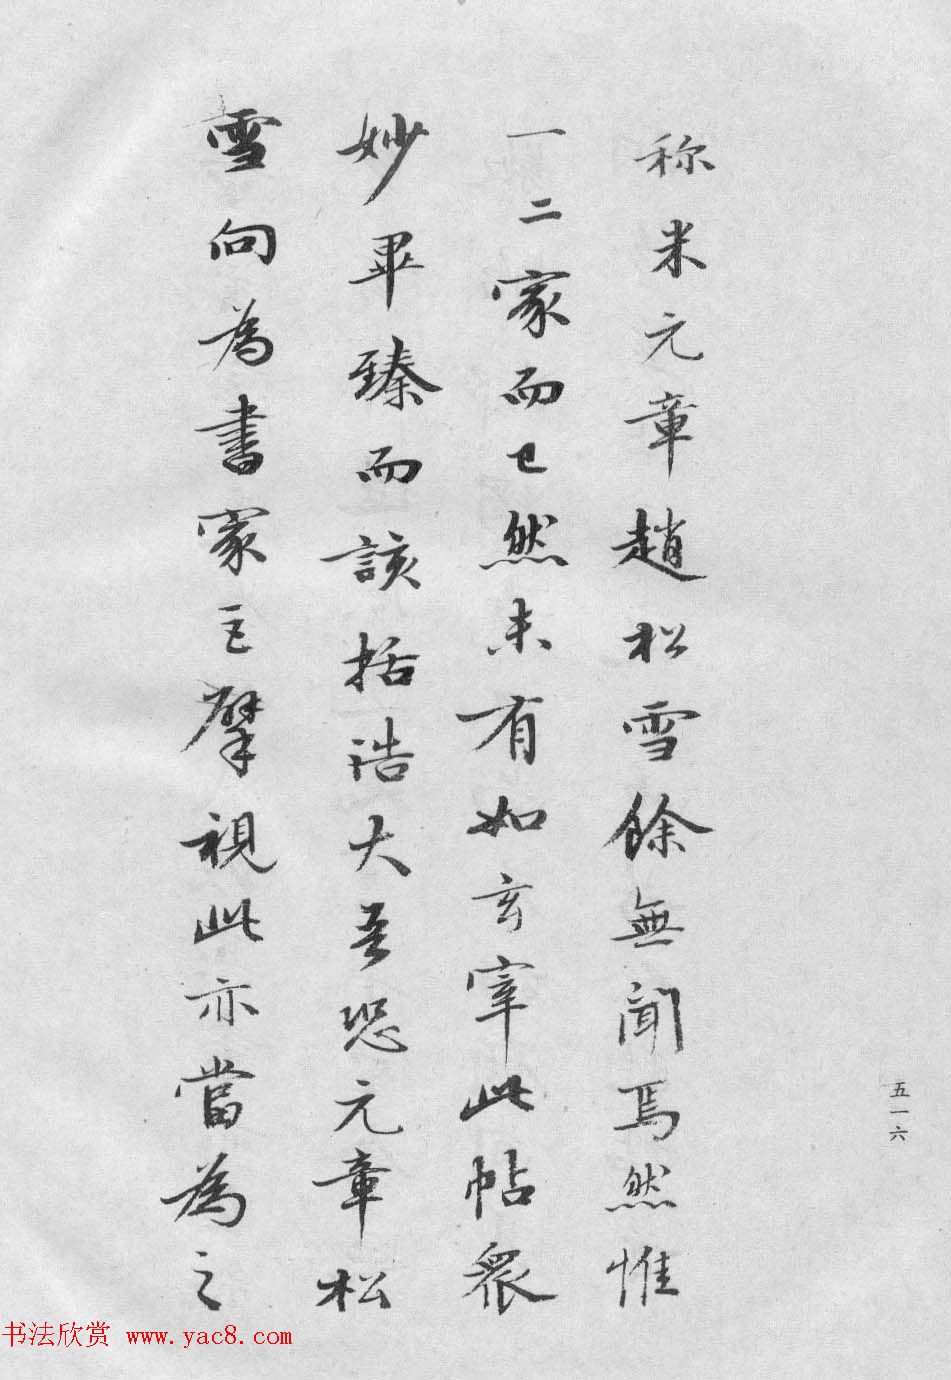 称米元章趙松雪餘無聞焉然惟
一二家而已然未有如玄宰此帖眾
妙畢臻而該括浩大吾恐元章松
雪向為書家巨擘視此亦當為之
五一六
书法欣赏 www.yac8.com